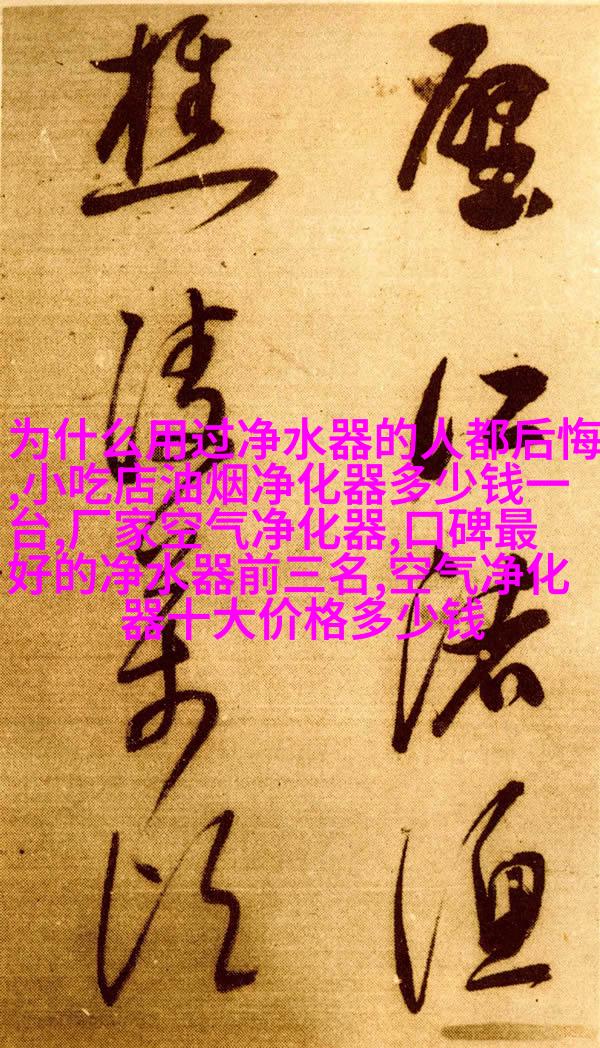 为什么用过净水器的人都后悔
,小吃店油烟净化器多少钱一
台,厂家空气净化器,口碑最
好的净水器前三名,空气净化
器十大价格多少钱
江渚漁
樵清萬頃